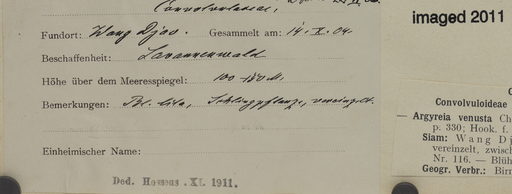 Convolvulaceae,
Fundort: Wang Djao. Gesammelt am: 14. X. 04.
Beschaffenheit: Savannenwald
Höhe über dem Meeresspiegel: 100-150 M.
Bemerkungen: Bl. lila, Schlingpflanze, vereinzelt.
Einheimischer Name:
Ded. Hosseus .XI. 1911.
imaged 2011
Convolvuloideae
— Argyreia venusta Ch
p. 330; Hook. f.
Siam: Wang Dj
vereinzelt, zwisc
Nr. 116. — Blüh
Geogr. Verbr.: Birm